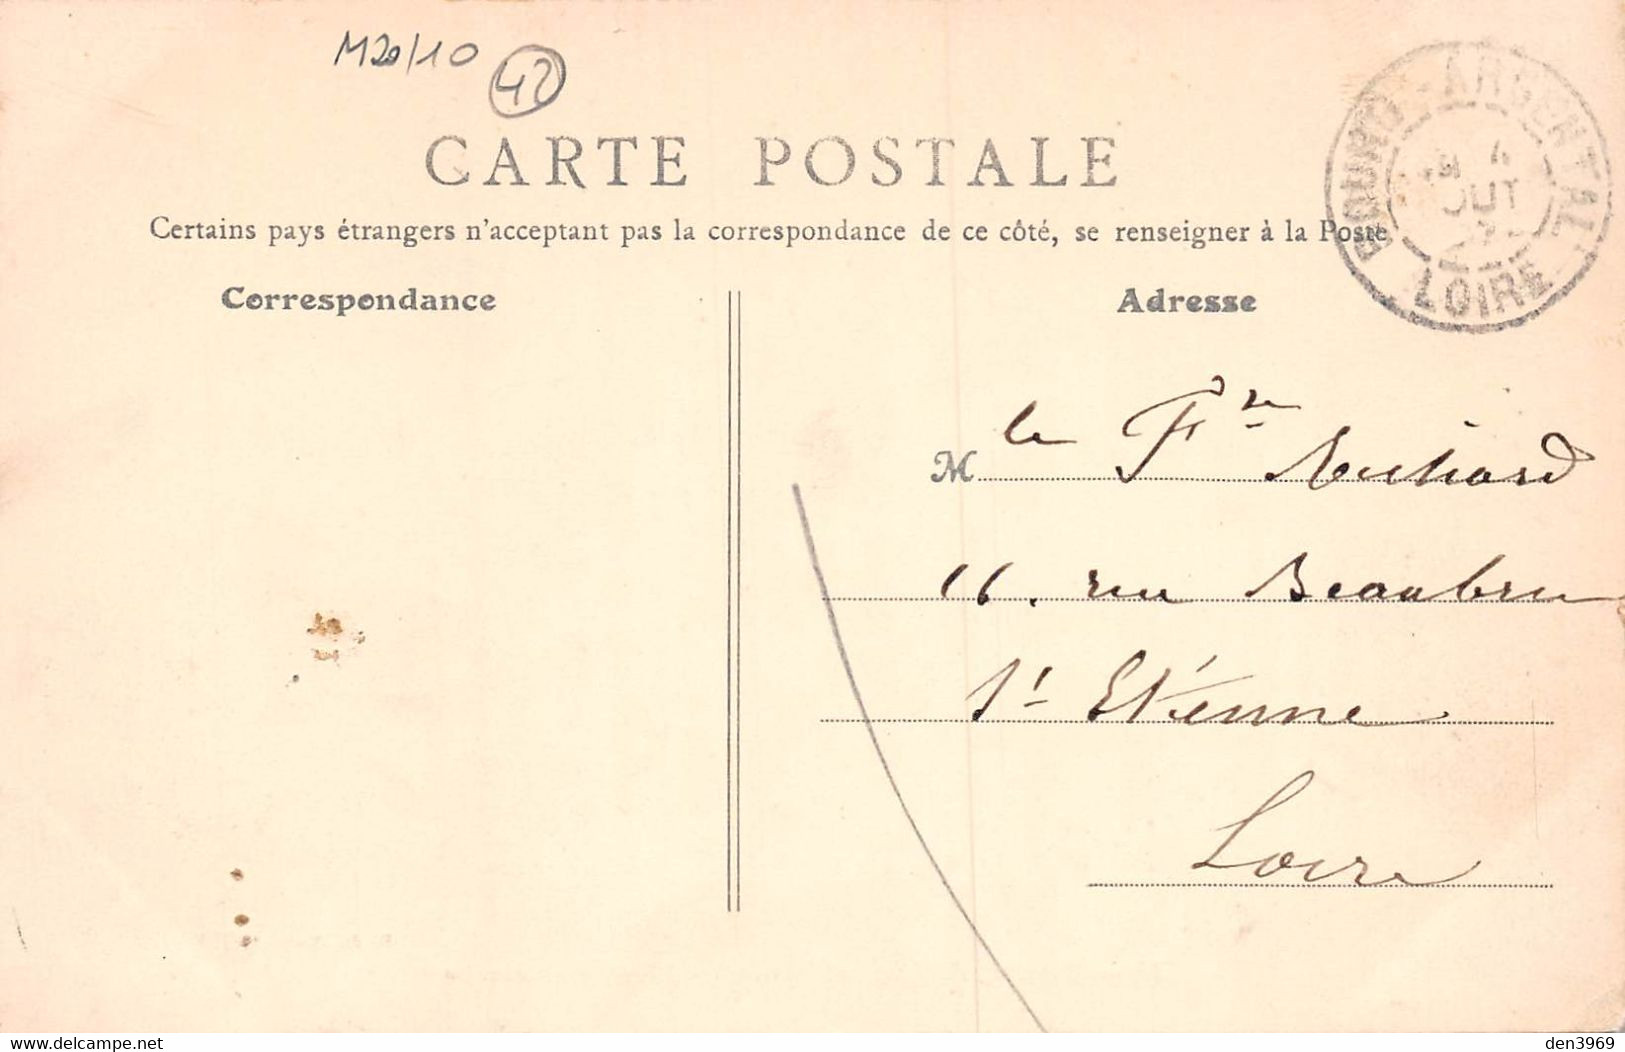 M20/10 42
CARTE POSTALE
Certains pays étrangers n'acceptant pas la correspondance de ce côté, se renseigner à la Poste
BOURG-ARGENTAL
LOIRE
Correspondance
Adresse
M le Fre
16. rue Beaubrun
St Etienne
Loire
delcampe.net
den3969